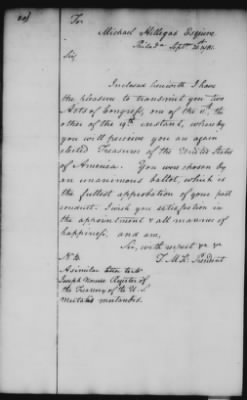 To
Michael Hillegas Esquire
Philada Septr 20th 1781.
Sir,
Inclosed herewith I have
the pleasure to transmit you two
Acts of Congress, one of the 11th the
other of the 19th instant, whereby
you will perceive you are again
elected Treasurer of the United States
of America. You were chosen by
an unanimous ballot, which is
the fullest approbation of your past
conduct. I wish you satisfaction in
the appointment & all manner of
happiness, and am,
Sir, with respect &c &c
T. M:K. President
N.B.
A similar letter to
Joseph Nourse Register of
the Treasury of the U.S.
mutatis mutandis.